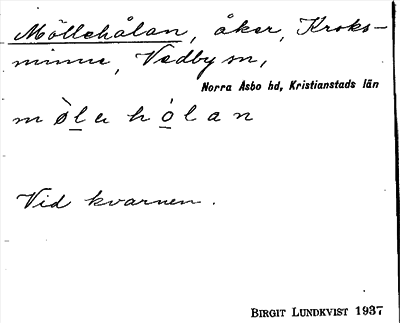 Möllehålan, åker, Kroks-
minne, Vedby sn,
Norra Åsbo hd, Kristianstads län
Vid kvarnen.
BIRGIT LUNDKVIST 1937